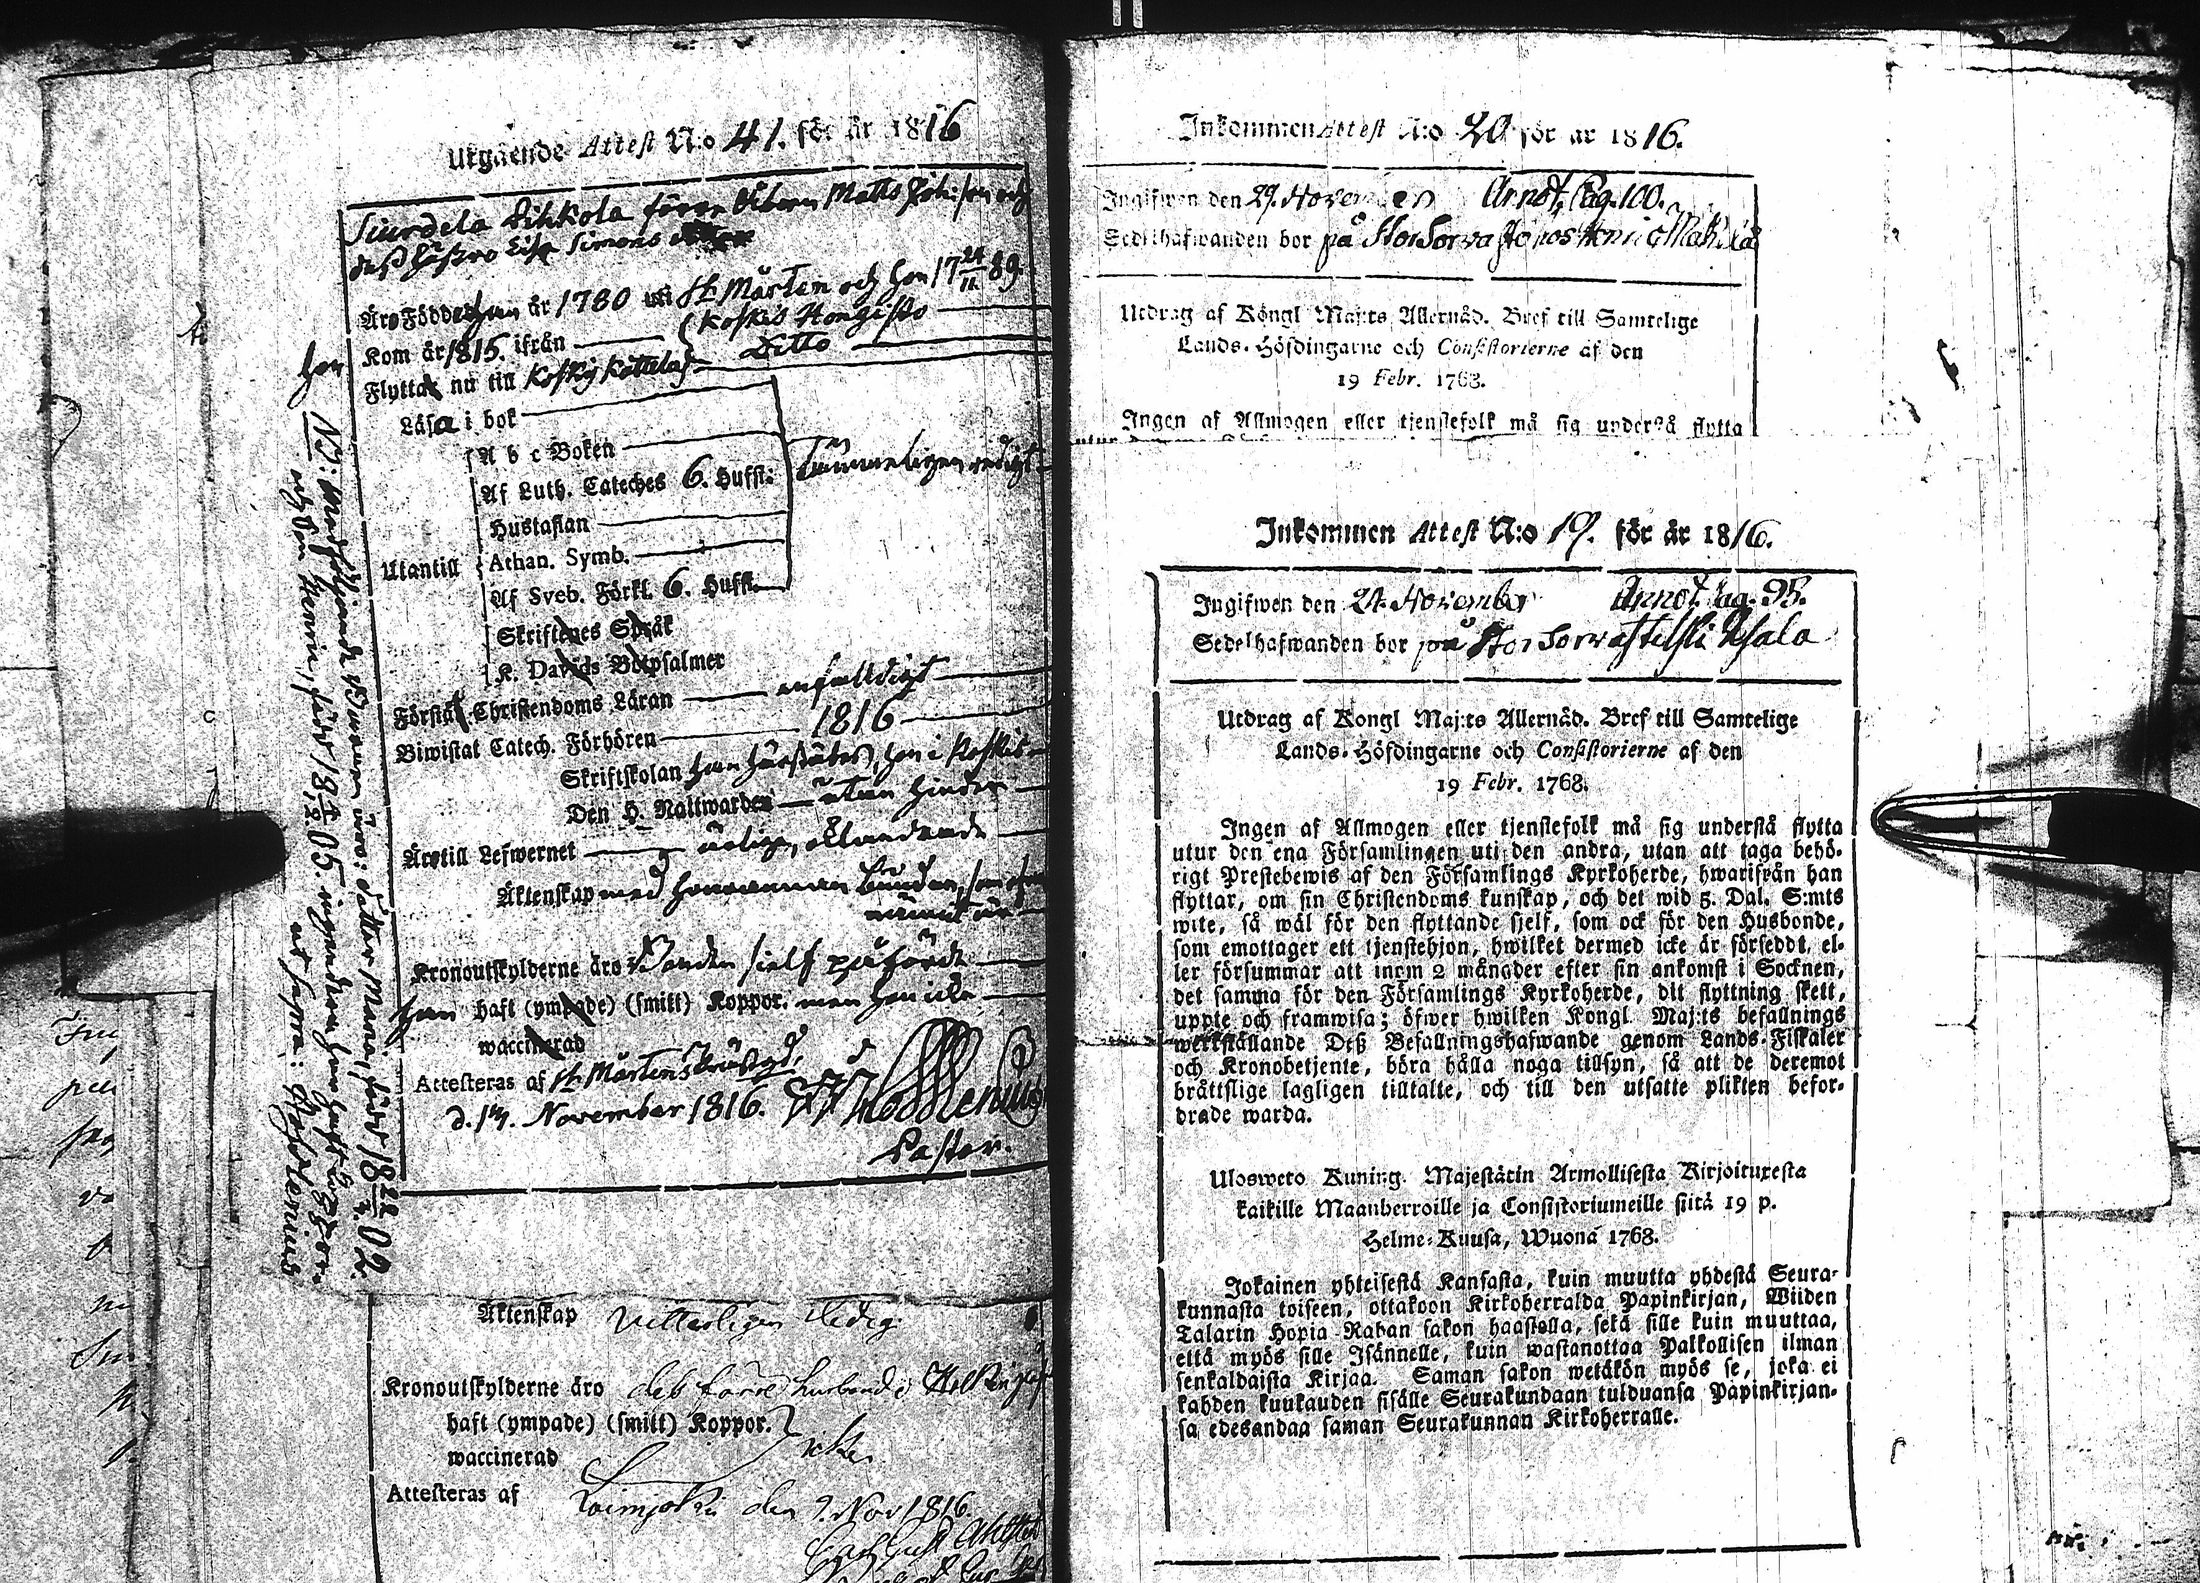 Utgående Attest N:o 41. för år 1816
Siurdela Dihkola förre Åboen Matts Joh:son och
deß hustro Lisa Simons
Äro Födde han år 1780 uti St Mårten och hon 17 24/11 89.
Kom år 1815. ifrån Koskis Hongisto
Flytta nu till Koskis Kättelas Ditto
Läsa i bok
A b c Boken
Af Luth. Cateches 6. Hufst: Tämmeligen redigt
Hustaflan
Utantill Athan. Symb.
Af Sveb. Förkl. 6. Hufst.
Skriftenes Språk
K. Davids Botpsalmer
Förstå Christendoms Läran enfaldigt
Biwistat Catech. Förhören 1816
Skriftskolan han härstädes, hon i Koskis
Den H. Nattwarden utan hinder
Äro till Lefwernet ärlige, ålandande
Äktenskap med hvarannan bundne, som ofvan
nämnt är
Kronoutskylderne äro Bonden sjelf påförde
han haft (ympade) (smitt) Koppor. men hon icke
waccinerad
Attesteras af St Mårtens Prästgd.
d. 14. November 1816.
Pastor.
NB: Medföljande Barnen äro: dotter Maria, född 18 22/7 02.
och son Henric, född 18 05. ingendera har haft koppor.
ut supra:
Äktenskap vetterligen Ledig.
Kronoutskylderne äro deb förre husbonde i
haft (ympade) (smitt) Koppor. Icke
waccinerad
Attesteras af Loimjoki den 9. Nov 1816
Inkommen Attest N:o 20 för år 1816.
Ingifwen den 29. November Annot. Pag. 100.
Sedelhafwanden bor på StorSorva
Utdrag af Köngl Maj:ts Allernåd. Bref till Samtelige
Lands-Höfdingarne och Consistorierne af den
19 Febr. 1768.
Ingen af Allmogen eller tjenstefolk må sig understå flytta
Inkommen Attest N:o 19. för år 1816.
Ingifwen den 24. November Annot. Pag. 95.
Sedelhafwanden bor på StorSorva
Utdrag af Kongl Maj:ts Allernåd. Bref till Samtelige
Lands-Höfdingarne och Consistorierne af den
19 Febr. 1768.
Ingen af Allmogen eller tjenstefolk må sig understå flytta
utur den ena Församlingen uti den andra, utan att taga behö-
rigt Prestebewis af den Församlings Kyrkoherde, hwarifrån han
flyttar, om sin Christendoms kunskap, och det wid 5. Dal. S:mts
wite, så wäl för den flyttande sjelf, som ock för den Husbonde,
som emottager ett tjenstehjon, hwilket dermed icke är försedt, el-
ler försummar att inom 2 månader efter sin ankomst i Socknen,
det samma för den Församlings Kyrkoherde, dit flyttning skett,
uppte och framwisa; öfwer hwilken Kongl. Maj:ts befallnings
werkställande Deß Befallningshafwande genom Lands-Fiskaler
och Kronobetjente, böra hålla noga tillsyn, så att de deremot
bråttslige lagligen tilltalte, och till den utsatte plikten befor-
drade warda.
Ulosweto Kuning. Majestätin Armollisesta Kirjoituxesta
kaikille Maanherroille ja Consistoriumeille siitä 19 p.
Helme-Kuusa, Wuonä 1768.
Jokainen yhteisestä Kansasta, kuin muutta yhdestä Seura-
kunnasta toiseen, ottakoon Kirkoherralda Papinkirjan, Wiiden
Talarin Hopia Rahan sakon haastolla, sekä sille kuin muuttaa,
että myös sille Isännelle, kuin wastanottaa Palkollisen ilman
senkaldaista Kirjaa. Saman sakon wetäkön myös se, joka ei
kahden kuukauden sisälle Seurakundaan tulduansa Papinkirjan-
sa edesandaa saman Seurakunnan Kirkoherralle.